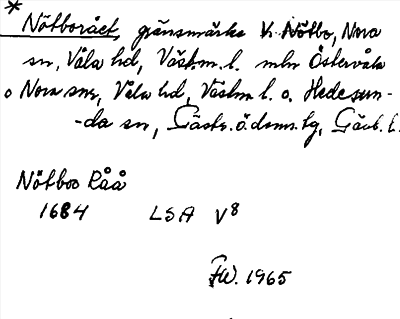 *
Nötboråét, gränsmärke V Nötbo, Nora
sn, Våla hd, Västm. l. mln Östervåla
o Nora snr, Våla hd, Västm l. o. Hedesun-
-da sn, Gästr. ö. dmns. tg, Gävl. l.
Nötboo Råå
1684 LSA V8
FW. 1965